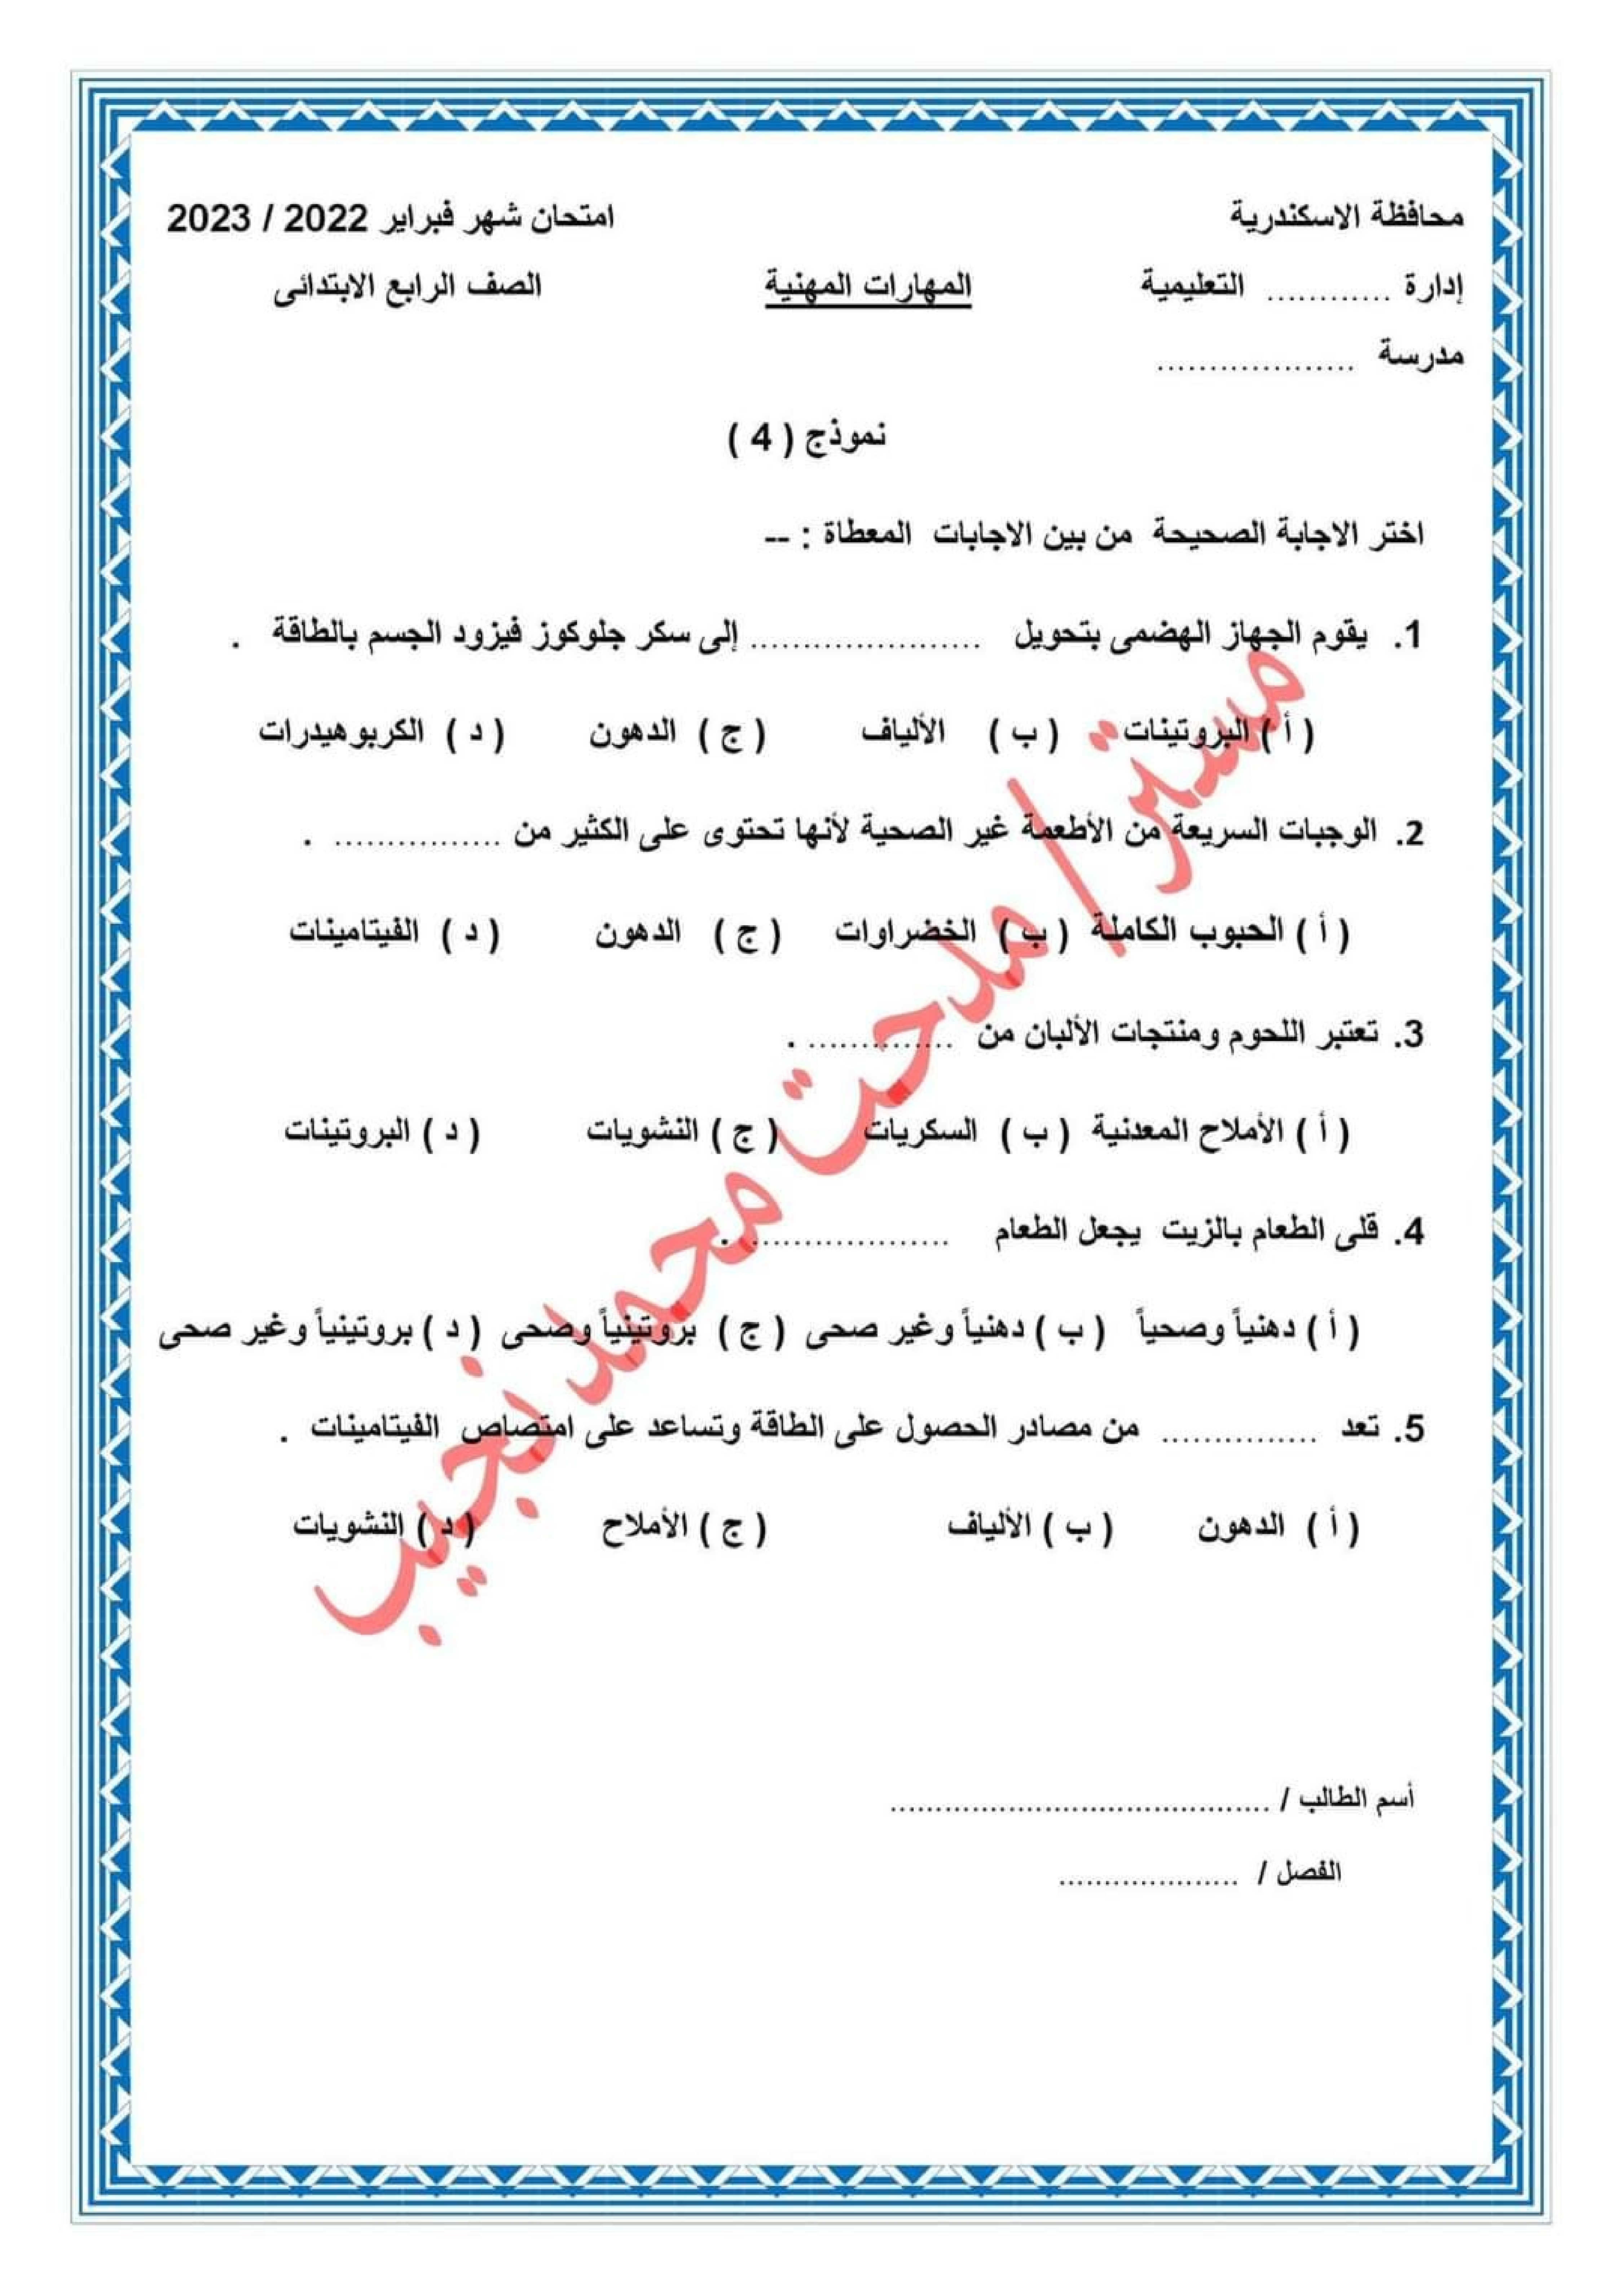 محافظة الاسكندرية امتحان شهر فبراير 2022 / 2023
إدارة ............ التعليمية المهارات المهنية الصف الرابع الابتدائى
مدرسة ...................
نموذج ( 4 )
اختر الاجابة الصحيحة من بين الاجابات المعطاة : --
1. يقوم الجهاز الهضمى بتحويل ...................... إلى سكر جلوكوز فيزود الجسم بالطاقة .
( أ ) البروتينات ( ب ) الألياف ( ج ) الدهون ( د ) الكربوهيدرات
2. الوجبات السريعة من الأطعمة غير الصحية لأنها تحتوى على الكثير من ................ .
( أ ) الحبوب الكاملة ( ب ) الخضراوات ( ج ) الدهون ( د ) الفيتامينات
3. تعتبر اللحوم ومنتجات الألبان من .............. .
( أ ) الأملاح المعدنية ( ب ) السكريات ( ج ) النشويات ( د ) البروتينات
4. قلى الطعام بالزيت يجعل الطعام ................... .
( أ ) دهنياً وصحياً ( ب ) دهنياً وغير صحى ( ج ) بروتينياً وصحى ( د ) بروتينياً وغير صحى
5. تعد ............... من مصادر الحصول على الطاقة وتساعد على امتصاص الفيتامينات .
( أ ) الدهون ( ب ) الألياف ( ج ) الأملاح ( د ) النشويات
مستر / مدحت محمد نجيب
أسم الطالب / ..........................................
الفصل / ....................